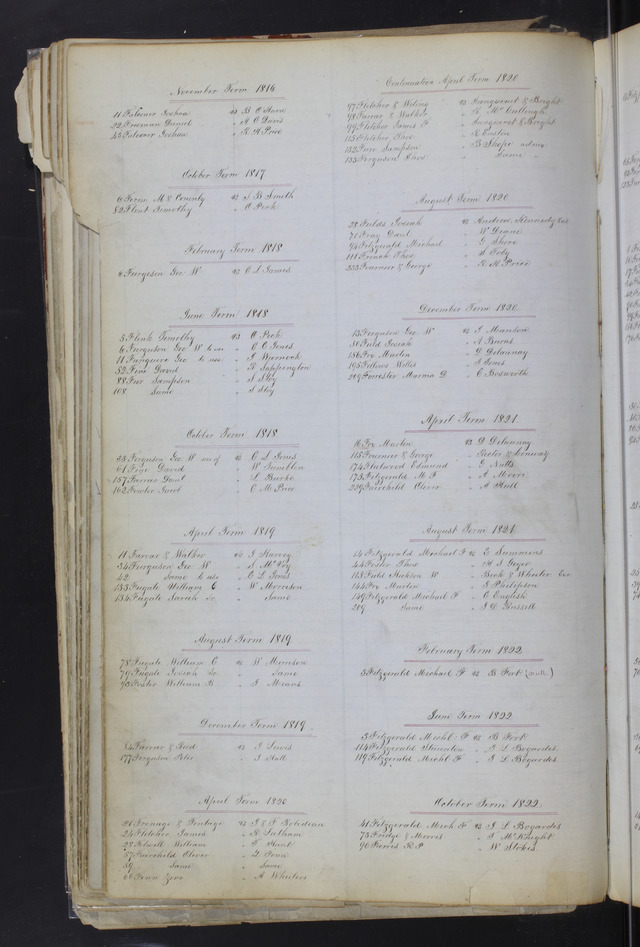 November Term 1816
11 Falconer Joshua vs B O Hara
22 Freeman Daniel " A C Davis
45 Falconer Joshua " R H Price
October Term 1817
6 Ferin M & County vs J B Smith
52 Flint Timothy " O Peck
February Term 1818
6 Furgeson Geo. W vs C L James
June Term 1818
5 Flink Timothy vs O Peck
6 Ferguson Geo W to use " C C Jones
11 Ferguire Geo to use " J Wjernock
52 Fine David " R Sappington
88 Farr Sampson " S Sloy
108 Same " S Sloy
October Term 1818
33 Ferguson Geo. W use of vs C L Jones
61 Frye David " W Tumblin
157 Farris Danl " L Burke
162 Fowler Saml " C M Price
April Term 1819
11 Farrar & Walker vs J Harvey
34 Furguson Geo W " S McCoy
42 Same to use " C L Jones
133 Fugate William C " W Morrison
134 Fugate Sarah Sr. " Same
August Term 1819
78 Fugate William C vs W Morrison
79 Fugate Josiah Sr. " Same
93 Foster William B " J Means
December Term 1819
84 Farrar & Reed vs J Lewis
177 Ferguson Peter " J Hall
April Term 1820
21 Fronage & Pontago vs J & F Robidean
24 Fletcher James " R Latham
28 Filwell William " T Hunt
57 Fairchild Oliver " Z Penn
59 Same " Same
68 Fenn Zero " A Wheeler
Continuation April Term 1820
97 Fletcher & Wiling vs Hanguenet & Bright
98 Farrar & Walker " H McCullough
99 Fletcher James F " Hanguenet & Bright
115 Fletcher Thos. " R Easton
132 Farr Sampson " B Shope admr
133 Ferguson Thos " Same "
August Term 1820
28 Fields Josiah vs Andrew Kennedy Exr
71 Fray Danl " W Deane
94 Fitzgerald Michael " G Shore
111 French Thos " S Coly
233 Fournier & George " R H Price
December Term 1820
13 Ferguson Geo. W vs J Munson
31 Fuld Josiah " A Burns
156 Fry Martin " D Delaunay
195 Fellows Willis " S Jones
209 Forrester Marma D " C Bosworth
April Term 1821
16 Fry Martin vs D Delaunay
115 Fournier & George " Reeler & Conway
174 Fleetwood Edmund " E Nutts
173 Fitzgerald M F " A Miron
229 Fairchild Oliver " A Hall
August Term 1821
14 Fitzgerald Michael F vs E Simmons
44 Foster Thos " H S Geyer
118 Fuld Jackson W " Beck & Wheeler Exr
144 Fry Martin " S Philipson
149 Fitzgerald Michael F " C English
209 Same " J D Russell
February Term 1822
3 Fitzgerald Michael F vs B Fort (null)
June Term 1822
3 Fitzgerald Michl. F vs B Fort
114 Fitzgerald Thornton " J L Bogardes
119 Fitzgerald Michl F " J L Bogardes
October Term 1822
41 Fitzgerald Mich F vs J L Bogardes
73 Fudge & Morris " J McKnight
90 Ferris R P " W Stokes